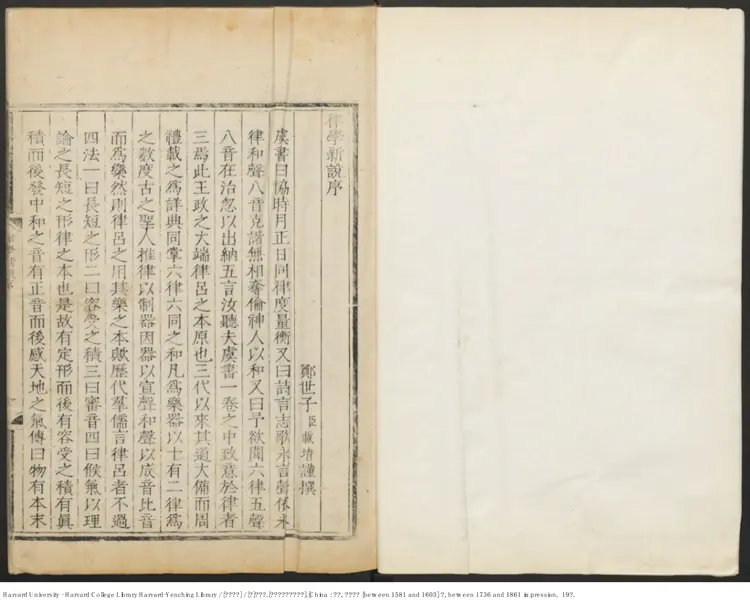 律學新說序
鄭世子臣載堉謹撰
虞書曰協時月正日同律度量衡又曰詩言志歌永言聲依永
律和聲八音克諧無相奪倫神人以和又曰予欲聞六律五聲
八音在治忽以出納五言汝聽夫虞書一卷之中致意於律者
三焉此王政之大端律呂之本原也三代以來其道大備而周
禮載之為詳典同掌六律六同之和凡為樂器以十有二律為
之數度古之聖人推律以制器因器以宣聲和聲以成音比音
而為樂然則律呂之用其樂之本歟歷代羣儒言律呂者不過
四法一曰長短之形二曰容受之積三曰審音四曰候氣以理
論之長短之形律之本也是故有定形而後有容受之積有眞
積而後發中和之音有正音而後感天地之氣傳曰物有本末
Harvard University - Harvard College Library Harvard-Yenching Library / [????] / [?]???.[?????????].[China : ??, ???? [between 1581 and 1603] ?, between 1736 and 1861 impression. 19?.